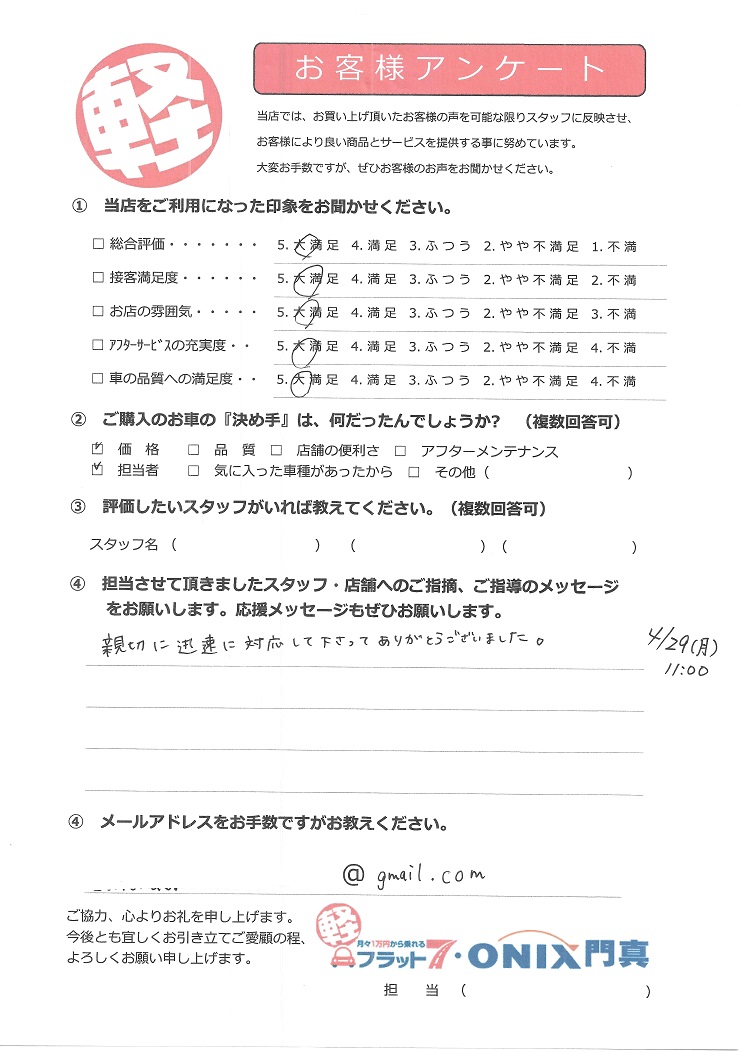 軽
お客様アンケート
当店では、お買い上げ頂いたお客様の声を可能な限りスタッフに反映させ、
お客様により良い商品とサービスを提供する事に努めています。
大変お手数ですが、ぜひお客様のお声をお聞かせください。
① 当店をご利用になった印象をお聞かせください。
□ 総合評価・・・・・・・ 5.大満足 4.満足 3.ふつう 2.やや不満足 1.不満
□ 接客満足度・・・・・・ 5.大満足 4.満足 3.ふつう 2.やや不満足 2.不満
□ お店の雰囲気・・・・・ 5.大満足 4.満足 3.ふつう 2.やや不満足 3.不満
□ ｱﾌﾀｰｻｰﾋﾞｽの充実度・・ 5.大満足 4.満足 3.ふつう 2.やや不満足 4.不満
□ 車の品質への満足度・・ 5.大満足 4.満足 3.ふつう 2.やや不満足 4.不満
② ご購入のお車の『決め手』は、何だったんでしょうか? （複数回答可）
☑ 価 格 □ 品 質 □ 店舗の便利さ □ アフターメンテナンス
☑ 担当者 □ 気に入った車種があったから □ その他（ ）
③ 評価したいスタッフがいれば教えてください。（複数回答可）
スタッフ名 （ ） （ ）（ ）
④ 担当させて頂きましたスタッフ・店舗へのご指摘、ご指導のメッセージ
をお願いします。応援メッセージもぜひお願いします。
親切に迅速に対応して下さってありがとうございました。
4/29(月)
11:00
④ メールアドレスをお手数ですがお教えください。
@ gmail.com
ご協力、心よりお礼を申し上げます。
今後とも宜しくお引き立てご愛顧の程、
よろしくお願い申し上げます。
軽
月々1万円から乗れる
フラット7・ONIX門真
担 当 （ ）